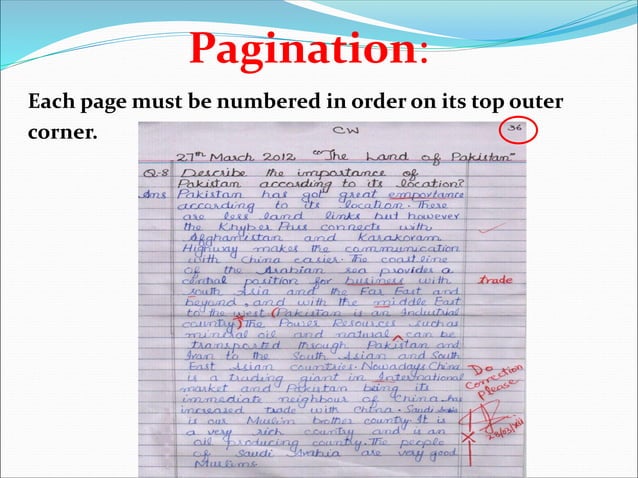 Pagination:
Each page must be numbered in order on its top outer
corner.
CW
36
27th March 2012 "The Land of Pakistan"
Q-8 Describe the importance of
Pakistan according to its location?
Ans Pakistan has got great emportance
according to its location. There
are less land links but however
the Khyber Pass connects with
Afghanistan and Karakoram
Highway makes the communication
with China easier. The coastline
of the Arabian sea provides a
central position for business with trade
south Asia and the Far East and
beyond, and with the middle East
to the west (Pakistan is an Industrial
country) The Power Resources such as
mineral oil and natural can be
transported through Pakistan and
Iran to the South Asian and South
East Asian countries. Nowadays China
is a trading giant in International
market and Pakistan being its
immediate neighbour of China has
increased trade with China. Saudi Arabia
is our Muslim brother country. It is
a very rich country and is an
oil producing country. The people
of Saudi Arabia are very good
Muslims
Do
Correction
Please